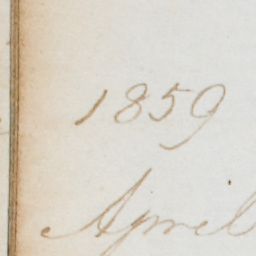 1859
April